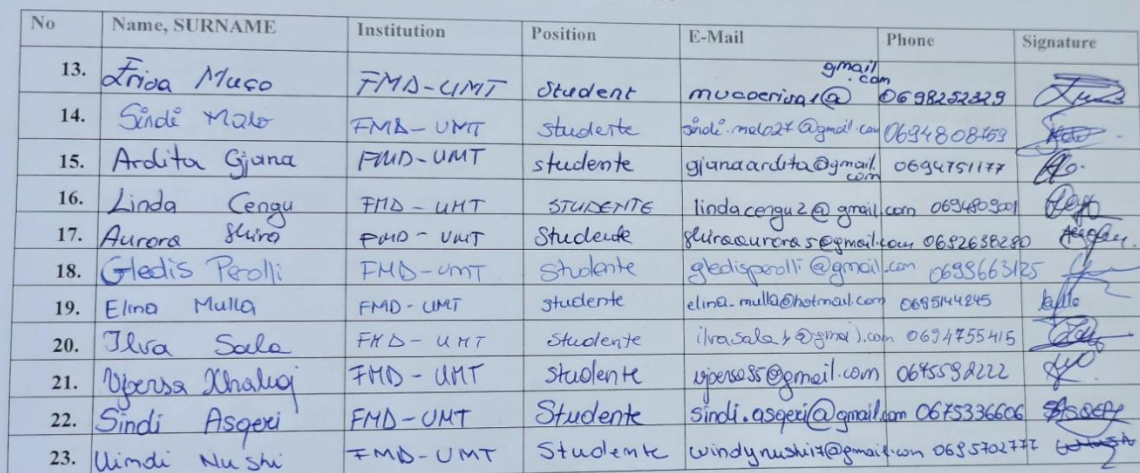 No Name, SURNAME Institution Position E-Mail Phone Signature
13. Erisa Muço FMD-UMT student mucoerisa1@gmail.com 0698252329
14. Sindi Malo FMD-UMT studente sindi.malo27@gmail.com 0694808759
15. Ardita Gjana FMD-UMT studente gjanaardita@gmail.com 0694751177
16. Linda Cengu FMD-UMT STUDENTE lindacengu2@gmail.com 0694809001
17. Aurora Shira FMD-UMT Studente shiraaurora5@gmail.com 0692638280
18. Gledis Perolli FMD-UMT Studente gledisperolli@gmail.com 0699663125
19. Elina Mulla FMD-UMT studente elina-mulla@hotmail.com 0695144245
20. Ilva Sala FMD-UMT studente 0694755415
21. FMD-UMT studente 0675592222
22. Sindi Asqeri FMD-UMT Studente sindi.asqeri@gmail.com 0675336606
23. Windi Nushi FMD-UMT Studente windynushi17@gmail.com 0695702777